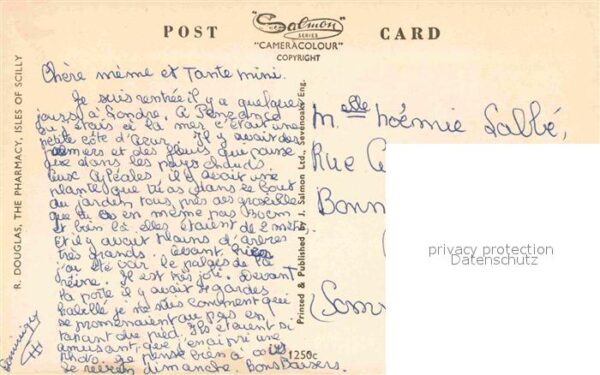 POST CARD
"Salmon"
SERIES
"CAMERACOLOUR"
COPYRIGHT
R. DOUGLAS, THE PHARMACY, ISLES OF SCILLY
Printed & Published by J. Salmon Ltd., Sevenoaks, Eng.
Chère mème et Tante mini.
Je suis rentrée il y a quelques
jours à Londre. A
où j'étais à la mer c'était une
petite côte d'azur. Il y avait des
palmiers et des fleurs qui pousse
que dans les pays chauds.
il y avait une
plante que tu as dans le bout
du jardin tous près des groseille
que tu as en même pas 80cm
et bien là elles étaient de 2 mètr.
Et il y avait plains d'arbres
très grands. Avant hier
j'ai été voir le palais de la
reine. Il est très joli. Devant
la porte il y avait 2 gardes
habillé je ne sais comment qui
se promenaient au pas en
tapant du pied. Ils étaient si
amusant, que j'en ai pri une
photo. Je pense bien à
Je reviens dimanche. Bons Baisers.
Dominique
Melle Noémie Labbé,
Rue
Bonn
(Som
1250c
privacy protection
Datenschutz